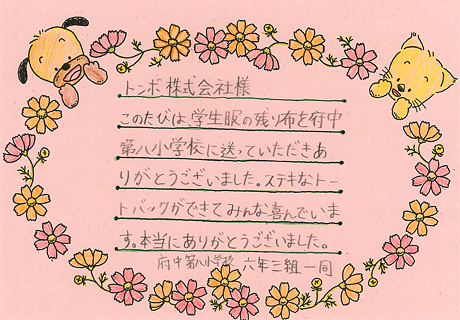 トンボ株式会社様
このたびは学生服の残り布を府中
第八小学校に送っていただきあ
りがとうございました。ステキなトー
トバックができてみんな喜んでいま
す。本当にありがとうございました。
府中第八小学校 六年三組一同